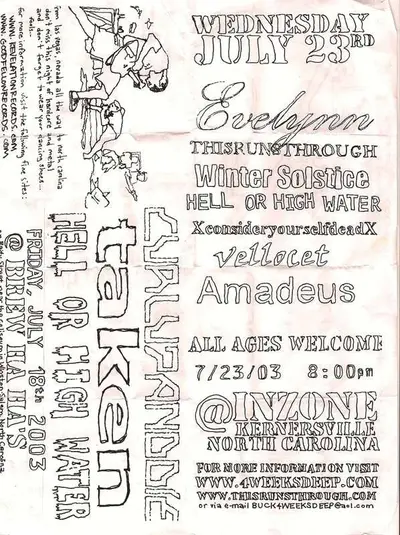 WEDNESDAY
JULY 23RD
Evelynn
THISRUNSTHROUGH
Winter Solstice
HELL OR HIGH WATER
XconsideryourselfdeadX
vellocet
Amadeus
ALL AGES WELCOME
7/23/03 8:00pm
@INZONE
KERNERSVILLE
NORTH CAROLINA
FOR MORE INFORMATION VISIT
WWW.4WEEKSDEEP.COM
WWW.THISRUNSTHROUGH.COM
or via e-mail BUCK4WEEKSDEEP@aol.com
from las vegas, nevada all the way to north carolina
don't miss this night of hardcore and metal
and don't forget to wear your dancing shoes...
for more information visit the following fine sites:
WWW.REVELATIONRECORDS.COM
WWW.GOODFELLOWRECORDS.COM
CURLUPANDDIE
taken
HELL OR HIGH WATER
FRIDAY, JULY 18th 2003
@ BREW HA HA'S